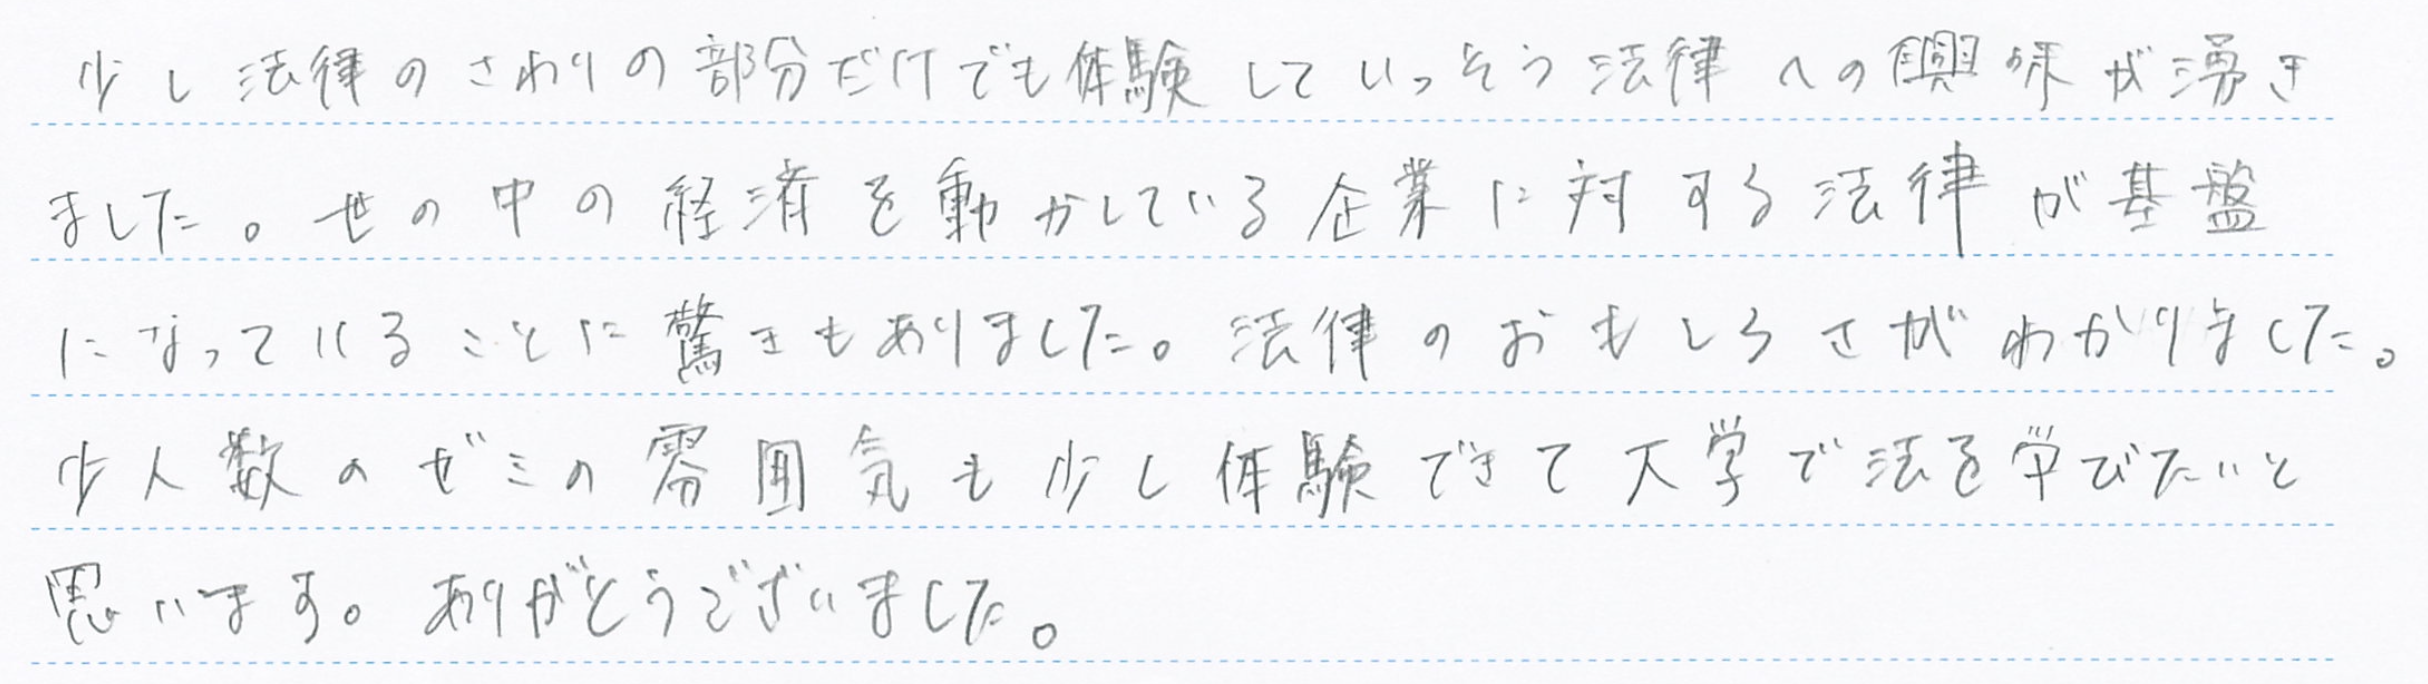 少し法律のさわりの部分だけでも体験していっそう法律への興味が湧き
ました。世の中の経済を動かしている企業に対する法律が基盤
になっていることに驚きもありました。法律のおもしろさがわかりました。
少人数のゼミの雰囲気も少し体験できて大学で法を学びたいと
思います。ありがとうございました。